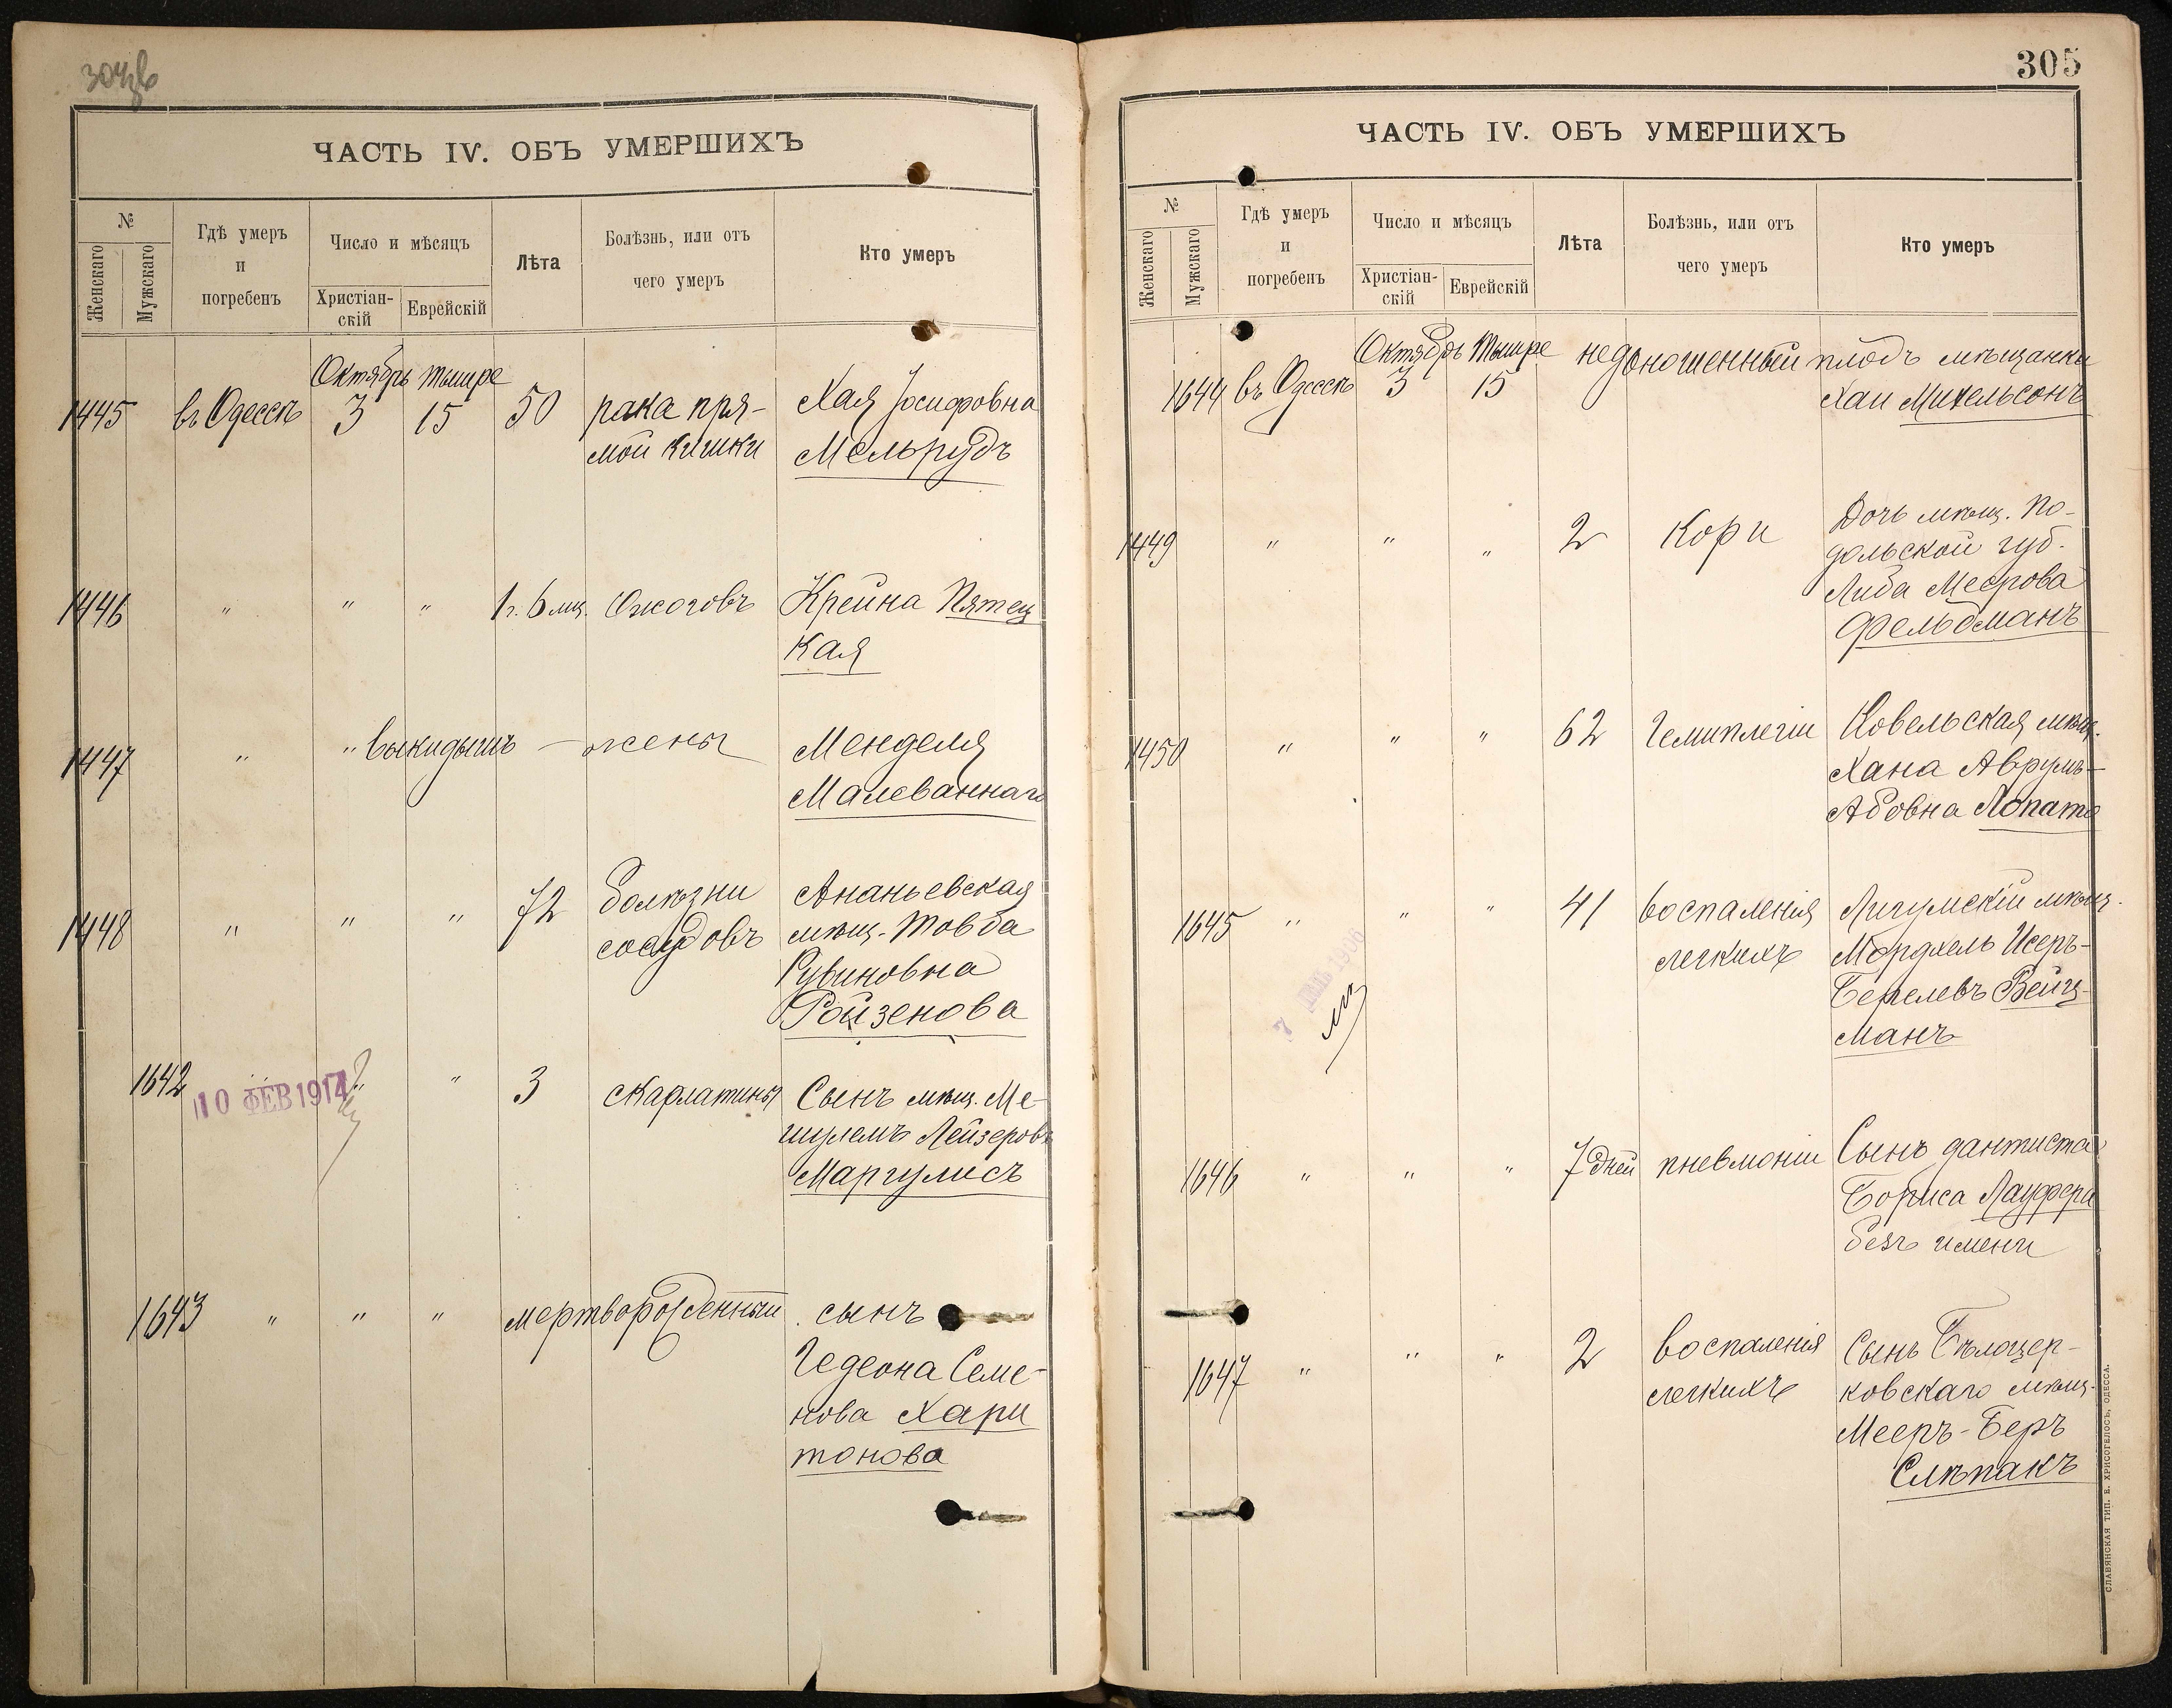 304об
ЧАСТЬ IV. ОБЪ УМЕРШИХЪ
№
Женскаго
Мужскаго
Гдѣ умеръ
и
погребенъ
Число и мѣсяцъ
Христіан-
скій
Еврейскій
Лѣта
Болѣзнь, или отъ
чего умеръ
Кто умеръ
Октябрь Тишре
1445 въ Одессѣ 3 15 50 рака пря- Хая Іосифовна
мой кишки Мельрудъ
1446 " " " 1 г. 6 мц. Ожоговъ Крейна Пятец
кая
1447 " " выкидышъ — жены Менделя
Малеваннаго
1448 " " " 72 болѣзни Ананьевская
сосудовъ мѣщ. Товба
Рувиновна
Ройзенова
1642 " " " 3 скарлатины Сынъ мѣщ. Ме-
10 ФЕВ 1914
шулемъ Лейзеровъ
Маргулисъ
1643 " " " мертворожденный сынъ
Гедеона Семе-
нова Хари
тонова
305
ЧАСТЬ IV. ОБЪ УМЕРШИХЪ
№
Женскаго
Мужскаго
Гдѣ умеръ
и
погребенъ
Число и мѣсяцъ
Христіан-
скій
Еврейскій
Лѣта
Болѣзнь, или отъ
чего умеръ
Кто умеръ
Октябрь Тишре
1644 въ Одессѣ 3 15 недоношенный плодъ мѣщанки
Хаи Михельсонъ
1449 " " " 2 Кори Дочь мѣщ. По-
дольской губ.
Либа Меерова
Фельдманъ
1450 " " " 62 Гемиплегіи Ковельская мѣщ.
Хана Аврумъ-
Абовна Лопата
1645 " " " 41 воспаленія Лигумскій мѣщ.
легкихъ Мордхель Исеръ-
Берелевъ Вейц-
манъ
1906
1646 " " " 7 дней пневмоніи Сынъ дантиста
Бориса Лауфера
безъ имени
1647 " " " 2 воспаленія Сынъ Бѣлоцер-
легкихъ ковскаго мѣщ.
Мееръ-Беръ
Слѣпакъ
СЛАВЯНСКАЯ ТИП. Е. ХРИСОГЕЛОСЪ, ОДЕССА.